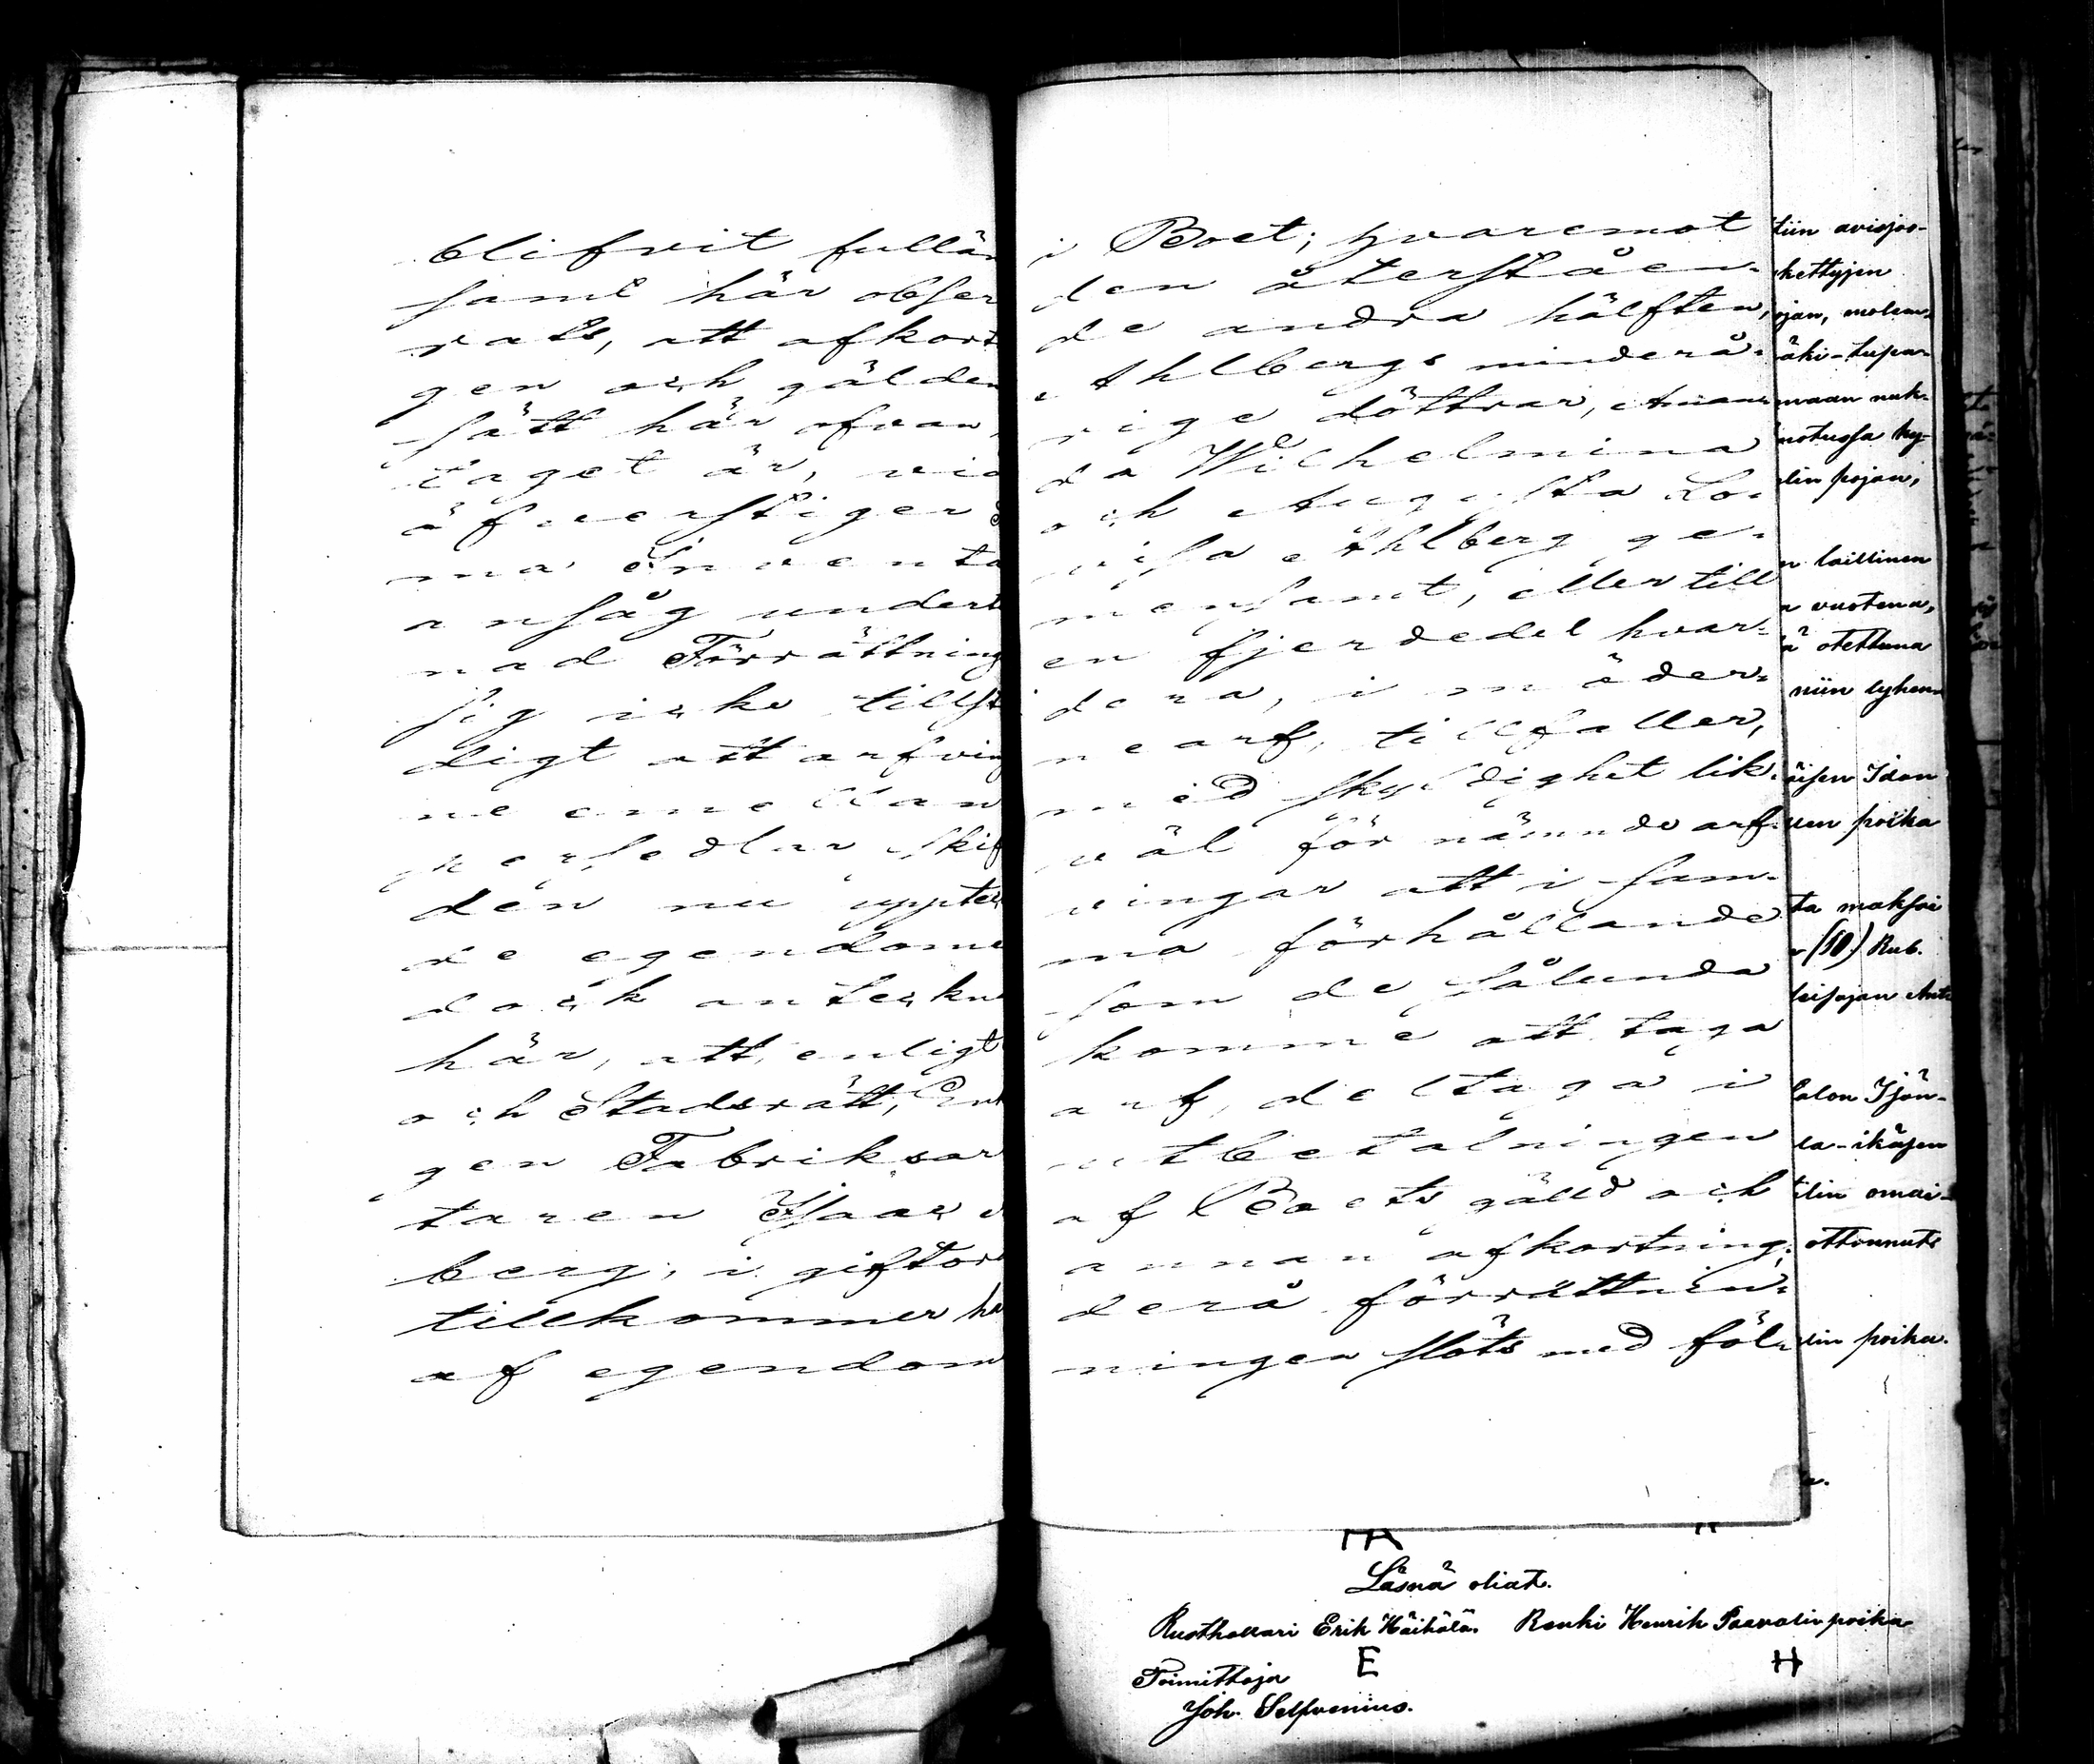 blifvit fullän
samt här obser
rats, att afkort
gen och gälden
sätt här ofvan
taget är, vid
öfverstiger
ma Inventa
ansåg undert
nad Förrättning
sig icke tillst
digt att arfving
ne emellan
persedlar skif
den nu uppteck
de egendome
dock anteckn
här, att, enligt
och Stadsrätt, Enk
gen Fabriksar
taren Isaac
berg, i giftor
tillkommer hä
af egendom
i Boet; hvaremot
den återståen-
de andra hälften,
Ahlbergs minderå-
rige döttrar, Aman-
da Wilhelmina
och Augusta Lo-
visa Ahlberg ge-
mensamt, eller till
en fjerdedel hvar-
dera, i möder-
nearf, tillfaller,
med skyldighet lik-
väl för nämnde arf-
vingar att i sam-
ma förhållande
som de sålunda
komme att taga
arf, deltaga i
utbetalningen
af Boets gälld och
annan afkortning,
derå förrättnin-
ningen slöts med föl-
tiin avisjoo-
kettyjen
ojan, molem-
äki-tupa-
maan nuk-
notussa ky-
lin pojan,
n laillinen
a vuotena,
ä otettuna
niin lyhen-
äisen Idan
uen poika
ta maksoi
(10) Rub.
leisojan Anti
lalon Yjön-
la-ikäisen
tilin omai-
ottanut
lin poika.
a.
Läsnä oliat.
Rusthollari Erik Häihälä. Renki Henrik Paavalin poika
E H
Toimittaja
Joh. Selfvenius.